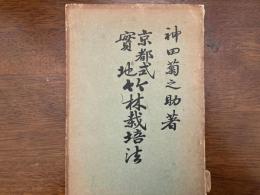 神田菊之助著
京都式
實地竹林栽培法